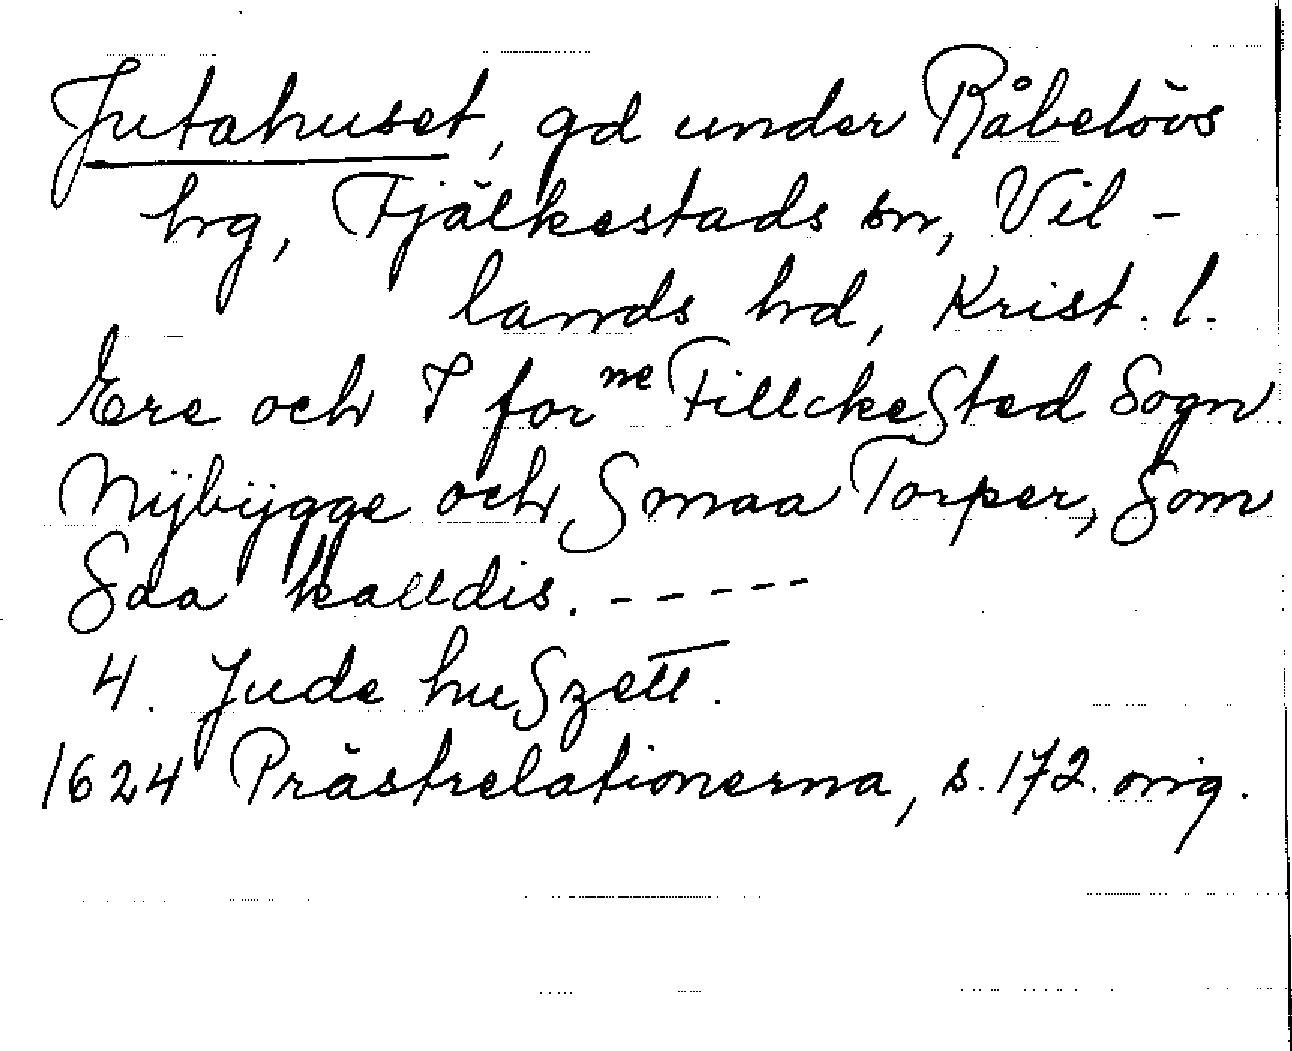 Jutahuset, gd under Råbelövs
hg, Fjälkestads sn, Vil-
lands hd, Krist. l.
Ere och I for ne FillckeSted Sogn
Nÿbÿgge och Smaa Torper, Som
Saa kalldis. -----
4. Jude huSzett.
1624 Prästrelationerna, s. 172. orig.